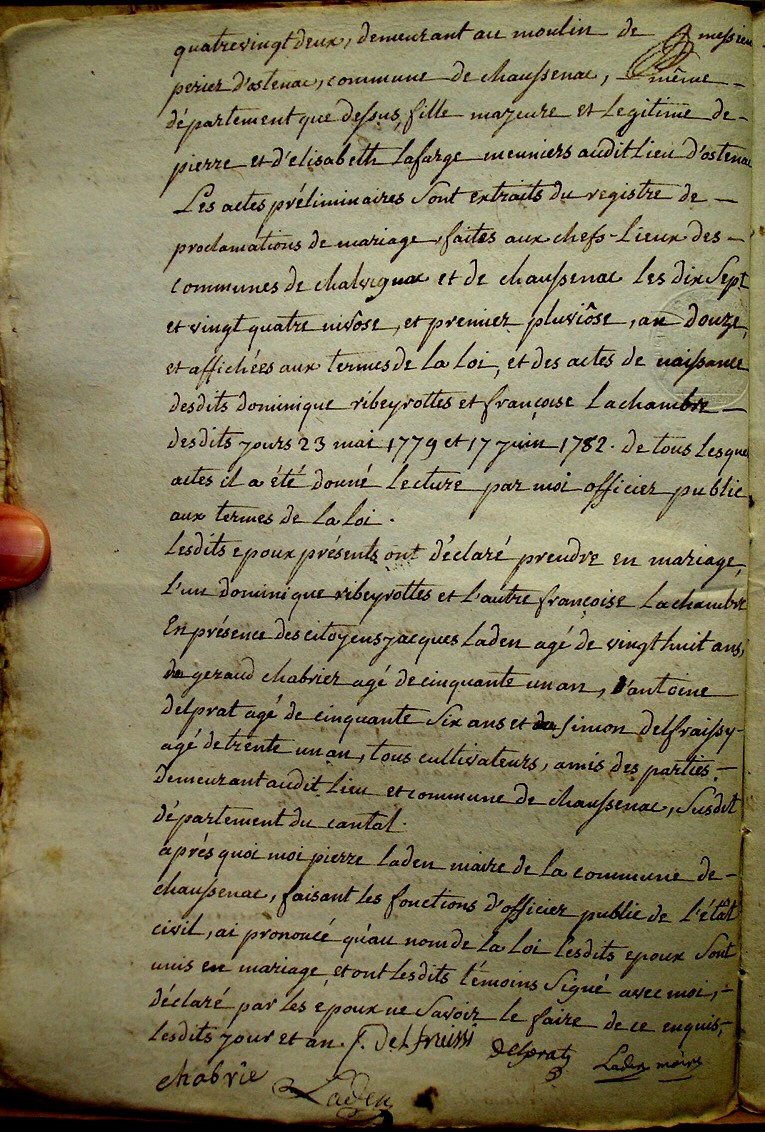 quatrevingt deux, demeurant au moulin de messieu
perier d'ostenac, commune de chaussenac, même –
département que dessus, fille majeure et legitime de –
pierre et d'elisabeth Lafarge meuniers audit lieu d'ostenac
Les actes préliminaires sont extraits du registre de –
proclamations de mariage, faites aux chefs-Lieux des –
communes de chalvignac et de chaussenac les dix sept
et vingt quatre nivôse, et premier pluviôse, an douze,
et affichées aux termes de la loi, et des actes de naissance
desdits dominique ribeyrottes et françoise Lachambre –
desdits jours 23 mai 1779 et 17 juin 1782. de tous lesque
actes il a été donné lecture par moi officier public
aux termes de la loi.
Lesdits epoux présents ont déclaré prendre en mariage,
l'un dominique ribeyrottes et l'autre françoise Lachambre
En présence des citoyens jacques Laden agé de vingt huit ans,
de geraud chabrier agé de cinquante un an, d'antoine
delprat agé de cinquante six ans et de simon delfraissy –
agé de trente un an, tous cultivateurs, amis des parties –
demeurant audit lieu et commune de chaussenac, susdit
département du cantal.
après quoi moi pierre Laden maire de la commune de –
chaussenac, faisant les fonctions d'officier public de l'état
civil, ai prononcé qu'au nom de la loi lesdits epoux sont
unis en mariage, et ont lesdits témoins signé avec moi, –
déclaré par les époux ne savoir le faire de ce enquis,
lesdits jour et an. J. delfreissi delprat Laden maire
chabrie Laden